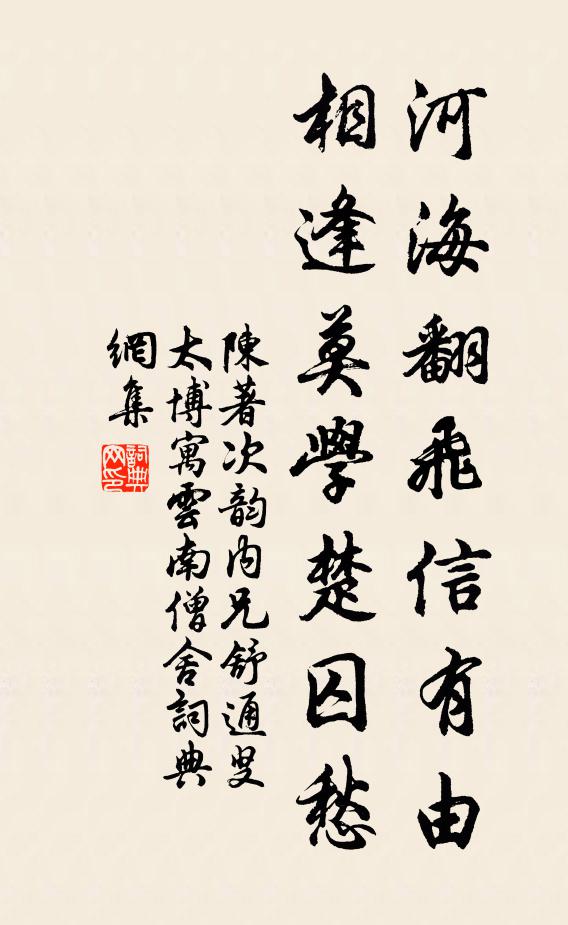 河海翻飛信有由
相逢莫學楚囚愁
陳著次韵内兄舒通叟
太博寓雲南僧舍詞典
網集
詞典网印